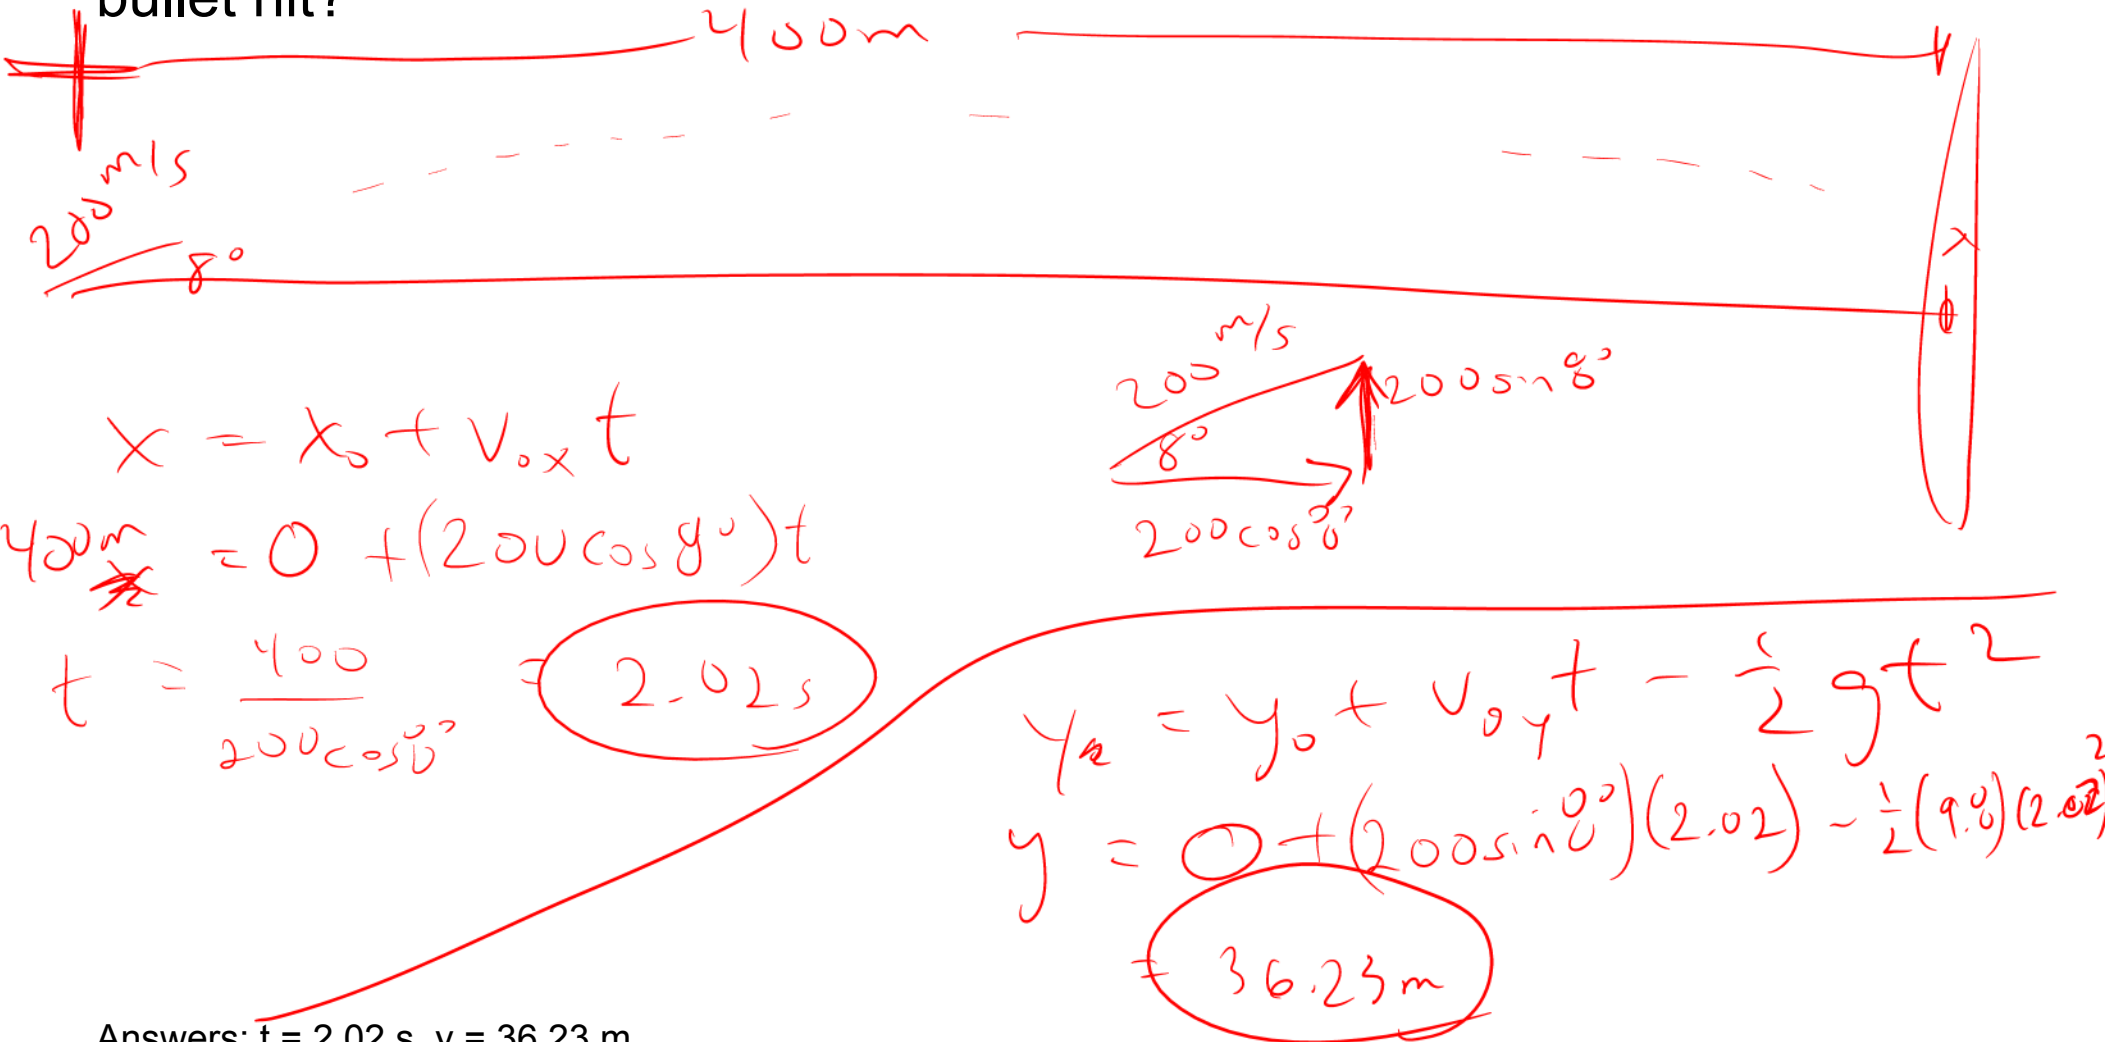 bullet hit?
400m
200 m/s
8°
200 m/s
200sin8°
8°
200cos8°
x = x₀ + v₀ₓ t
400m = 0 + (200cos8°)t
t = 400/200cos8° = 2.02s
y = y₀ + v₀y t - 1/2 gt²
y = 0 + (200sin8°)(2.02) - 1/2(9.8)(2.02)²
= 36.23m
Answers: t = 2.02 s, y = 36.23 m